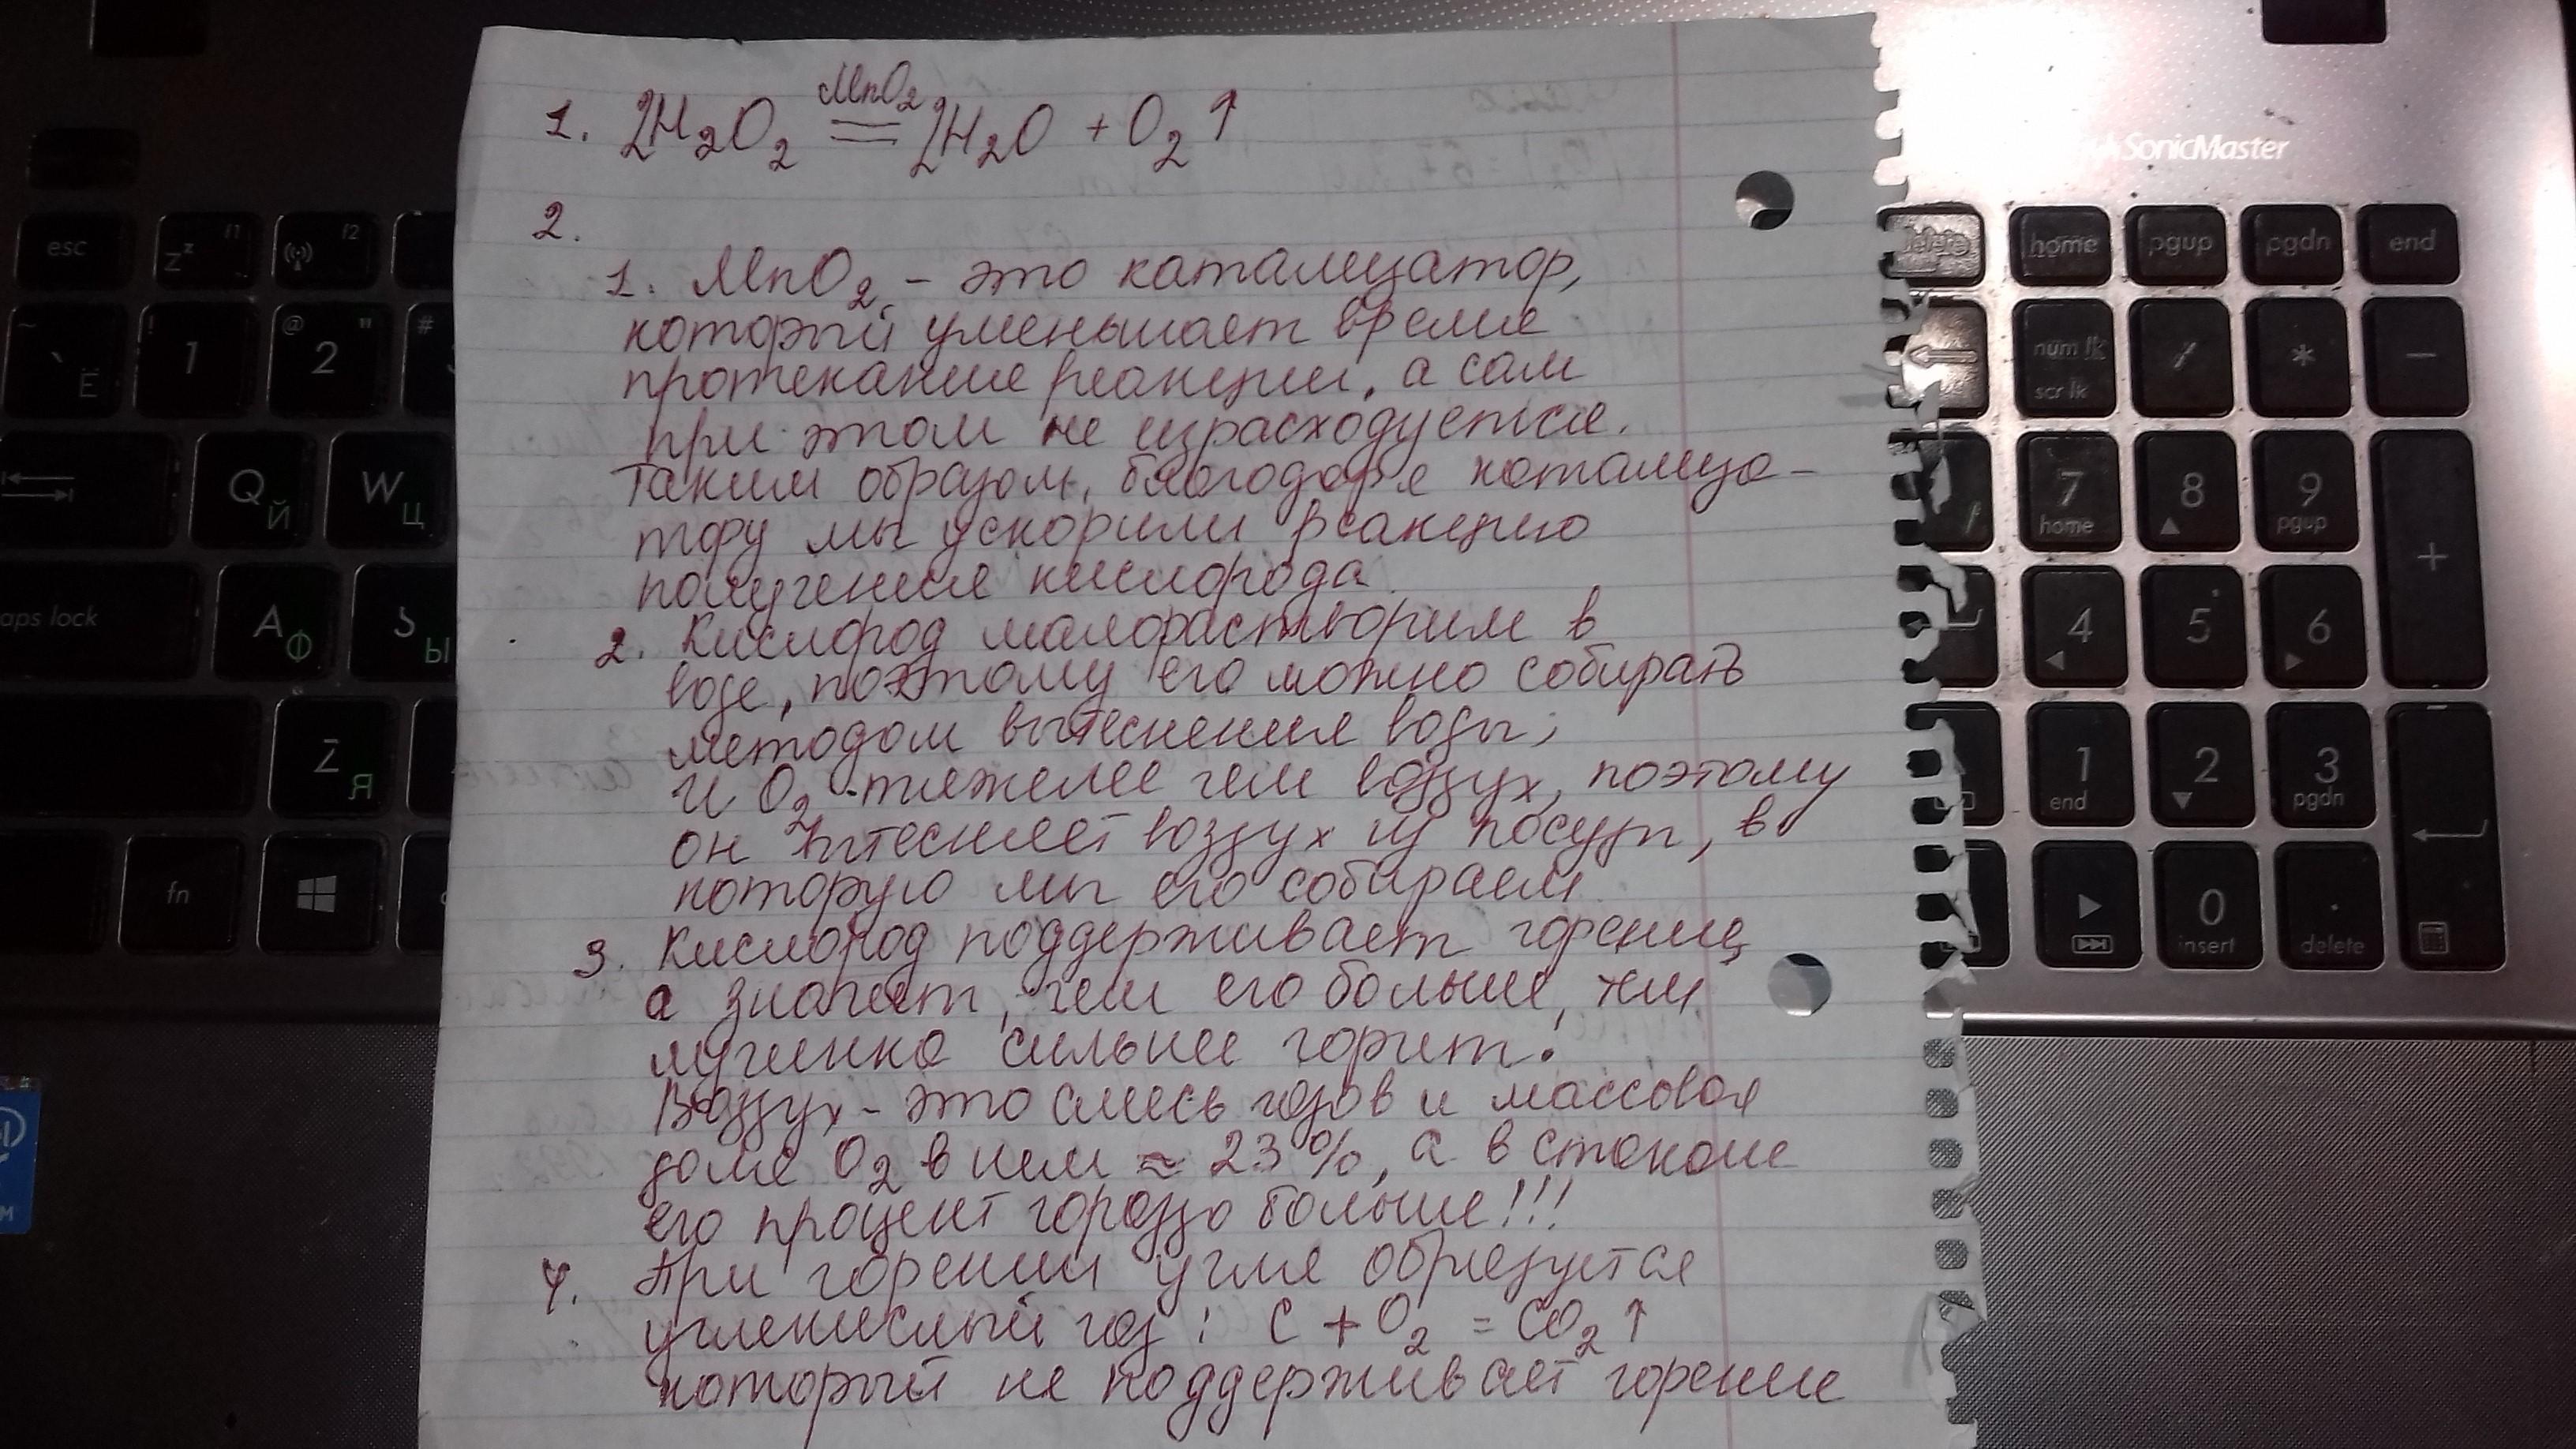 1. 2H2O2 =MnO2= 2H2O + O2 ↑
2.
1. MnO2 - это катализатор,
который уменьшает время
протекание реакции, а сам
при этом не израсходуется.
Таким образом, благодаря катализа-
тору мы ускорили реакцию
получения кислорода
2. Кислород малорастворим в
воде, поэтому его можно собирать
методом вытеснения воды;
и O2 - тяжелее чем воздух, поэтому
он вытесняет воздух из посуды, в
которую мы его собираем.
3. Кислород поддерживает горение,
а значит, чем его больше, тем
лучинка сильнее горит!
Воздух - это смесь газов и массовая
доля O2 в нем ≈ 23%, а в стакане
его процент гораздо больше!!!
4. При горении угля образуется
углекислый газ: C + O2 = CO2 ↑
который не поддерживает горение
SonicMaster
esc f1 f2 delete home pgup pgdn end
~ ` Ё ! 1 @ " 2 # num lk scr lk / * -
Q Й W Ц 7 home 8 9 pgup +
caps lock A Ф S Ы 4 5 6
Z Я 1 end 2 3 pgdn
fn 0 insert . delete